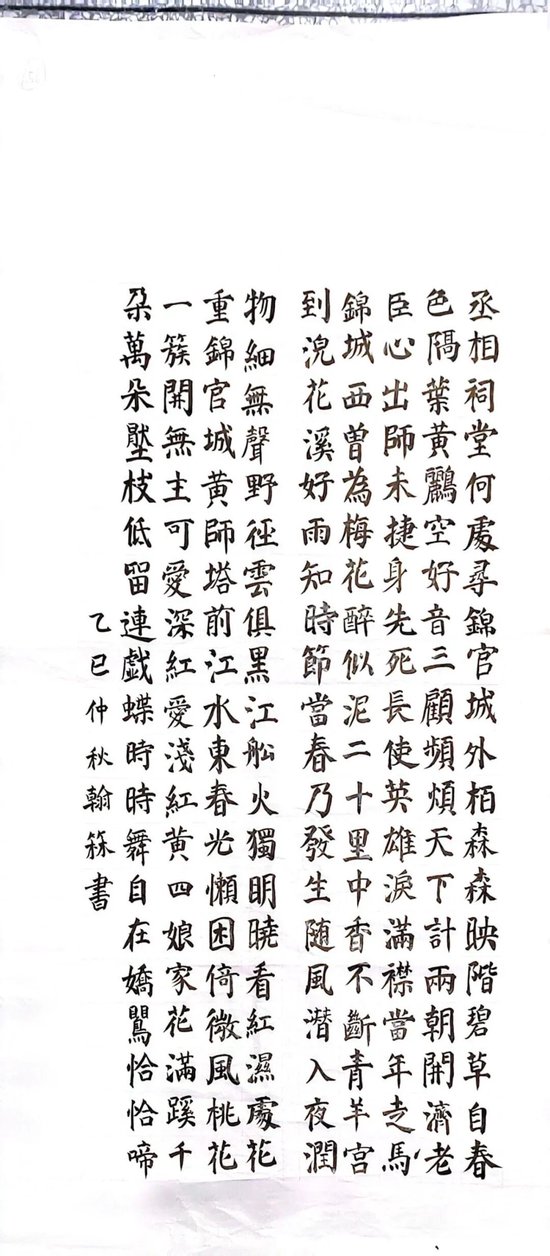 丞相祠堂何處尋錦官城外栢森森映階碧草自春
色隔葉黃鸝空好音三顧頻煩天下計兩朝開濟老
臣心出師未捷身先死長使英雄淚滿襟當年走馬
錦城西曾為梅花醉似泥二十里中香不斷青羊宮
到浣花溪好雨知時節當春乃發生随風潛入夜潤
物細無聲野徑雲俱黑江舩火獨明曉看紅濕處花
重錦官城黃師塔前江水東春光懶困倚微風桃花
一簇開無主可愛深紅愛淺紅黃四娘家花滿蹊千
朵萬朵壓枝低留連戯蝶時時舞自在嬌鶯恰恰啼
乙巳仲秋翰書